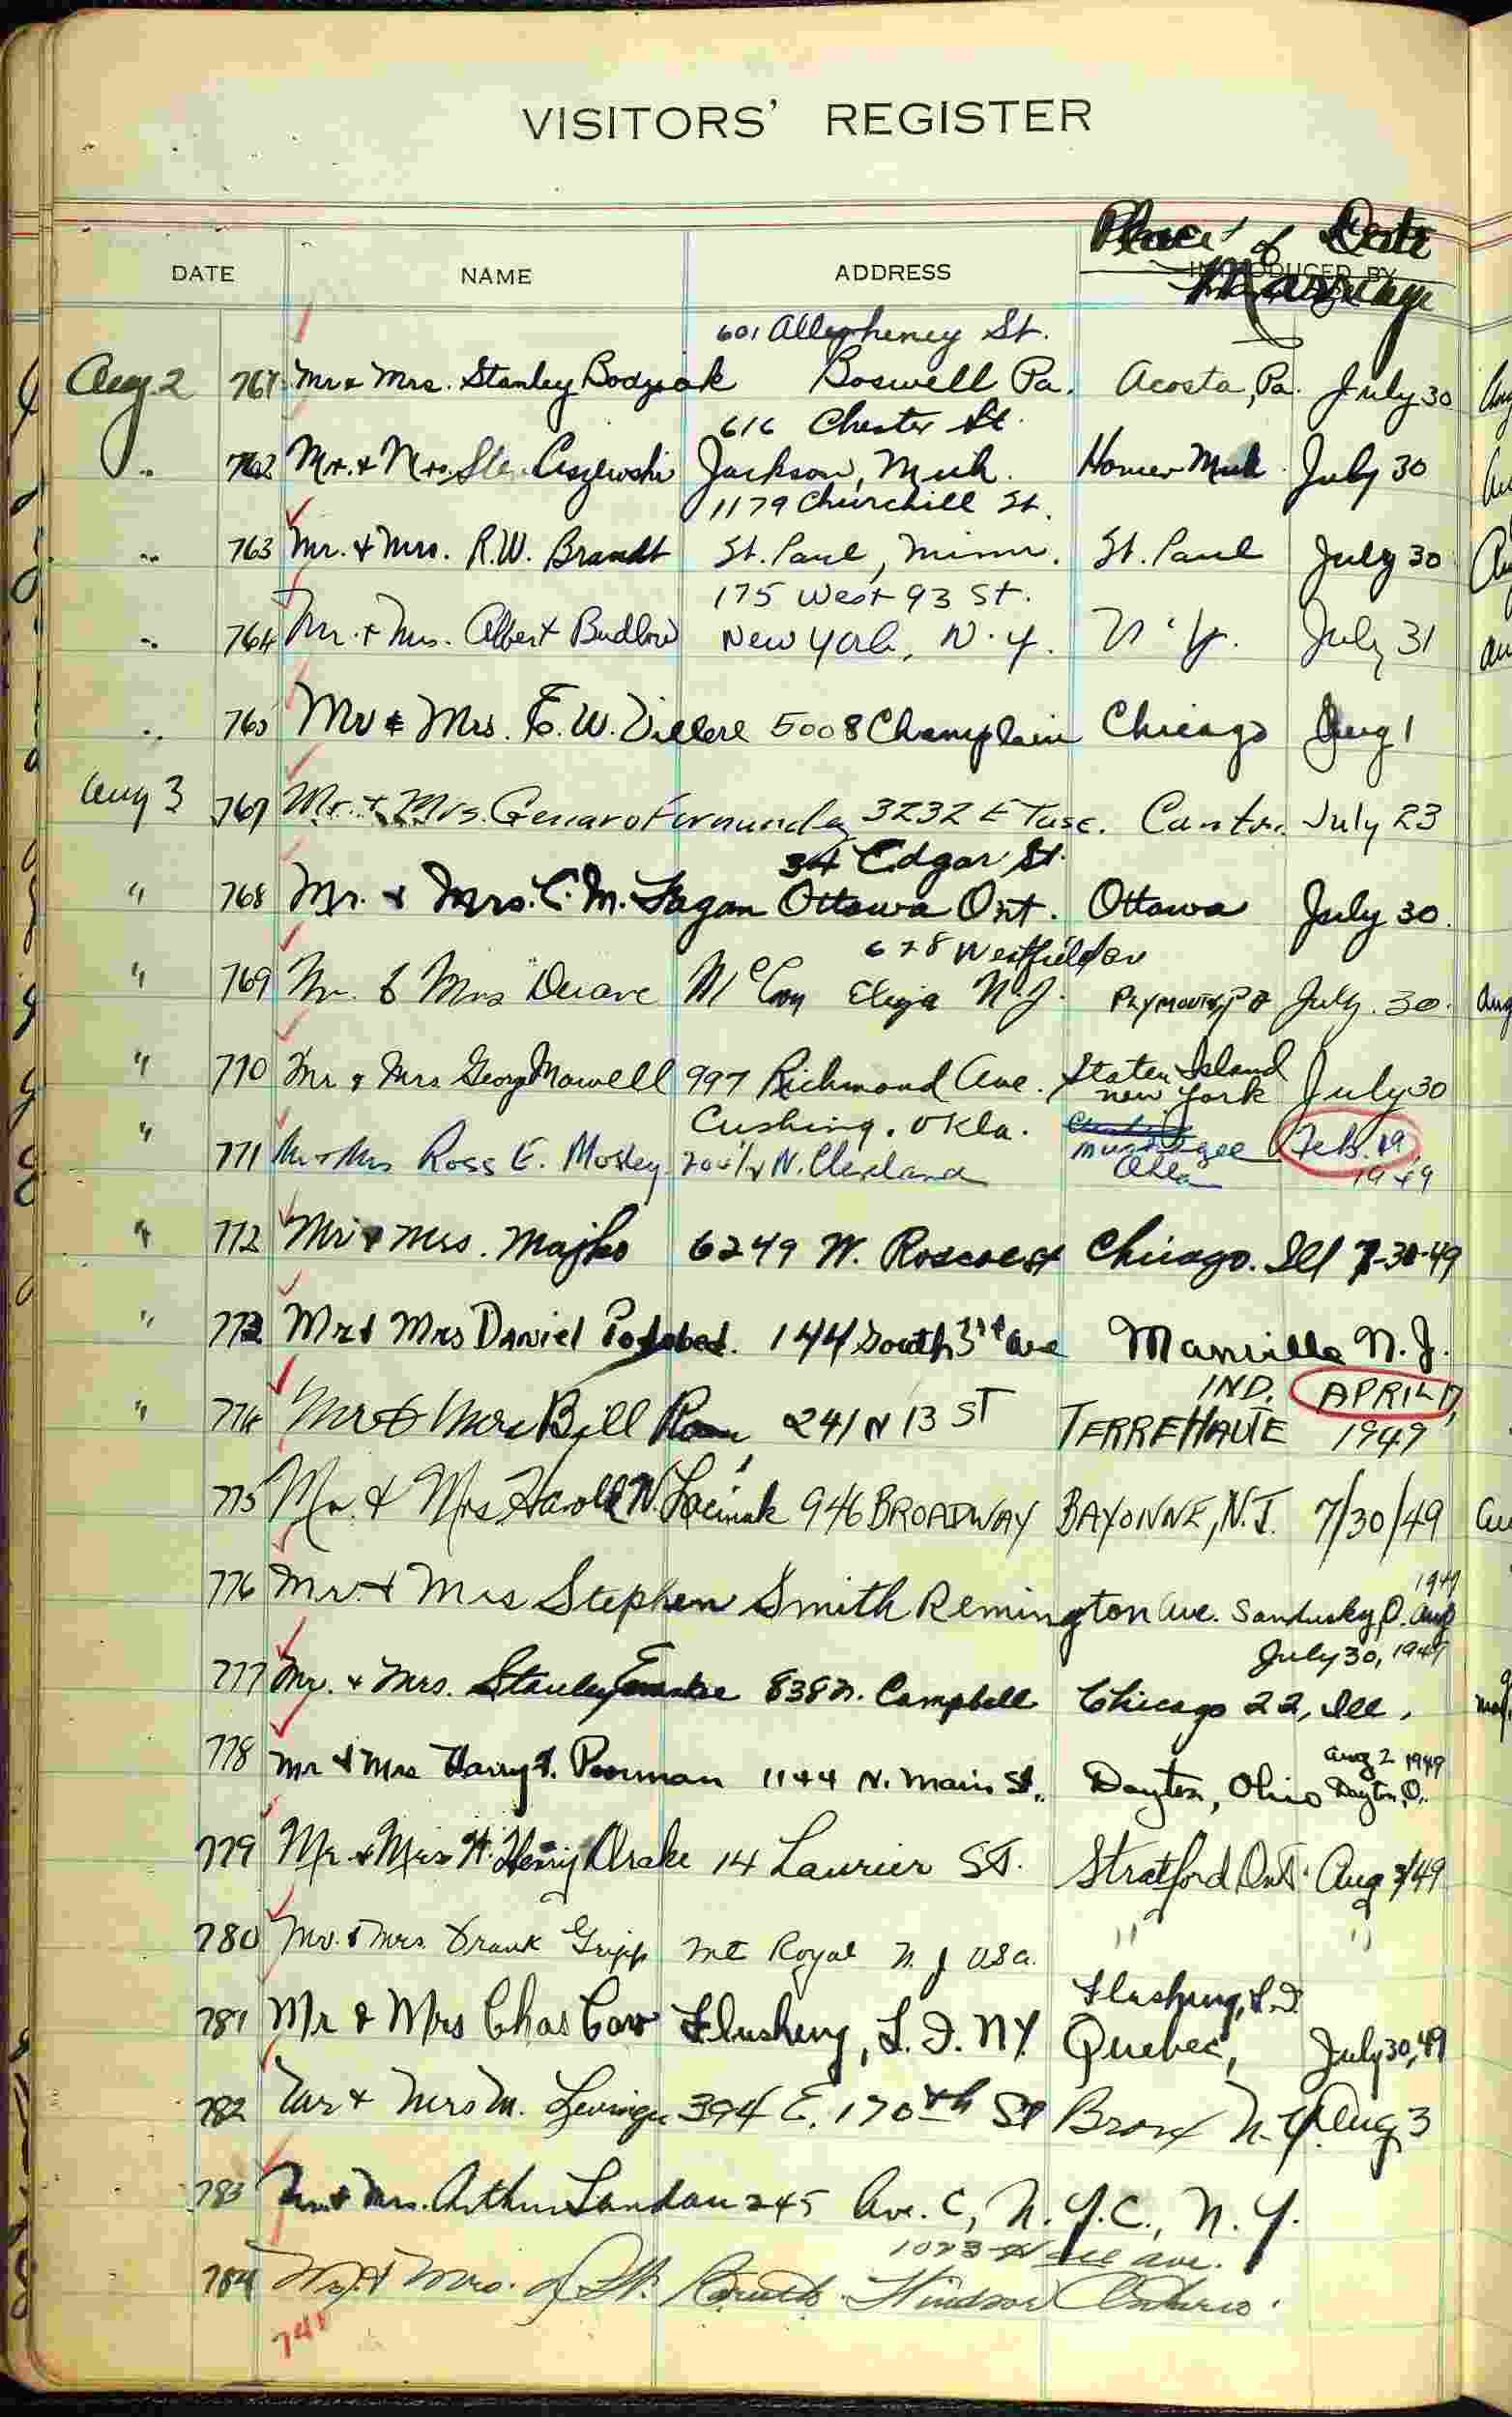 VISITORS' REGISTER
Place & Date
of
DATE NAME ADDRESS INTRODUCED BY
Marriage
601 Allegheney St.
Aug. 2 761 Mr & Mrs. Stanley Boswell Pa. Acosta, Pa. July 30
616 Chester St.
" 762 Mr. & Mrs. Jackson, Mich. Homer Mich. July 30
1179 Churchill St.
" 763 Mr. & Mrs. R.W. Brandt St. Paul, Minn. St. Paul July 30
175 West 93 St.
" 764 Mr. & Mrs. Albert Budlow New York, N.Y. N.Y. July 31
" 765 Mr & Mrs. E.W. Villere 5008 Champlain Chicago Aug 1
Aug 3 767 Mr. & Mrs. Genaro 3232 E Tusc. Canton July 23
34 Edgar St.
" 768 Mr. & Mrs. C.M. Fagan Ottawa Ont. Ottawa July 30.
678 Westfield av
" 769 Mr. & Mrs Duane McCoy N.J. PLYMOUTH, PA July. 30.
" 770 Mr & Mrs George Mowell 997 Richmond Ave. Staten Island July 30
New York
Cushing. Okla.
" 771 Mr & Mrs Ross E. Mosley 204½ N. Cleveland Muskogee Feb. 19,
Okla 1949
" 772 Mr & Mrs. Majko 6249 W. Roscoe st Chicago. Ill 7-30-49
" 773 Mr & Mrs Daniel 144 South 3rd Ave Manville N.J.
IND. APRIL 17,
" 774 Mr & Mrs Bill 241 N 13 ST TERRE HAUTE 1949
775 Mr. & Mrs Harold W. 946 BROADWAY BAYONNE, N.J. 7/30/49
1949
776 Mr. & Mrs Stephen Smith Remington Ave. Sandusky, O. Aug
July 30, 1949
777 Mr. & Mrs. Stanley 838 N. Campbell Chicago 22, Ill.
Aug 2 1949
778 Mr & Mrs Harry F. Poorman 1144 N. Main St. Dayton, Ohio Dayton, O.
779 Mr. & Mrs H. Henry Drake 14 Laurier St. Stratford Ont. Aug 3/49
780 Mr. & Mrs. Frank Gripp Mt Royal N.J USA. " "
Flushing, L.I.
781 Mr & Mrs Chas Cow Flushing, L.I. NY. Quebec, July 30, 49
782 Mr & Mrs M. 394 E. 170th St Bronx N.Y. Aug 3
783 Mr & Mrs. Arthur Landau 245 Ave. C, N.Y.C., N.Y.
1023 Ave.
784 Mr. & Mrs. Windsor Ontario.
741